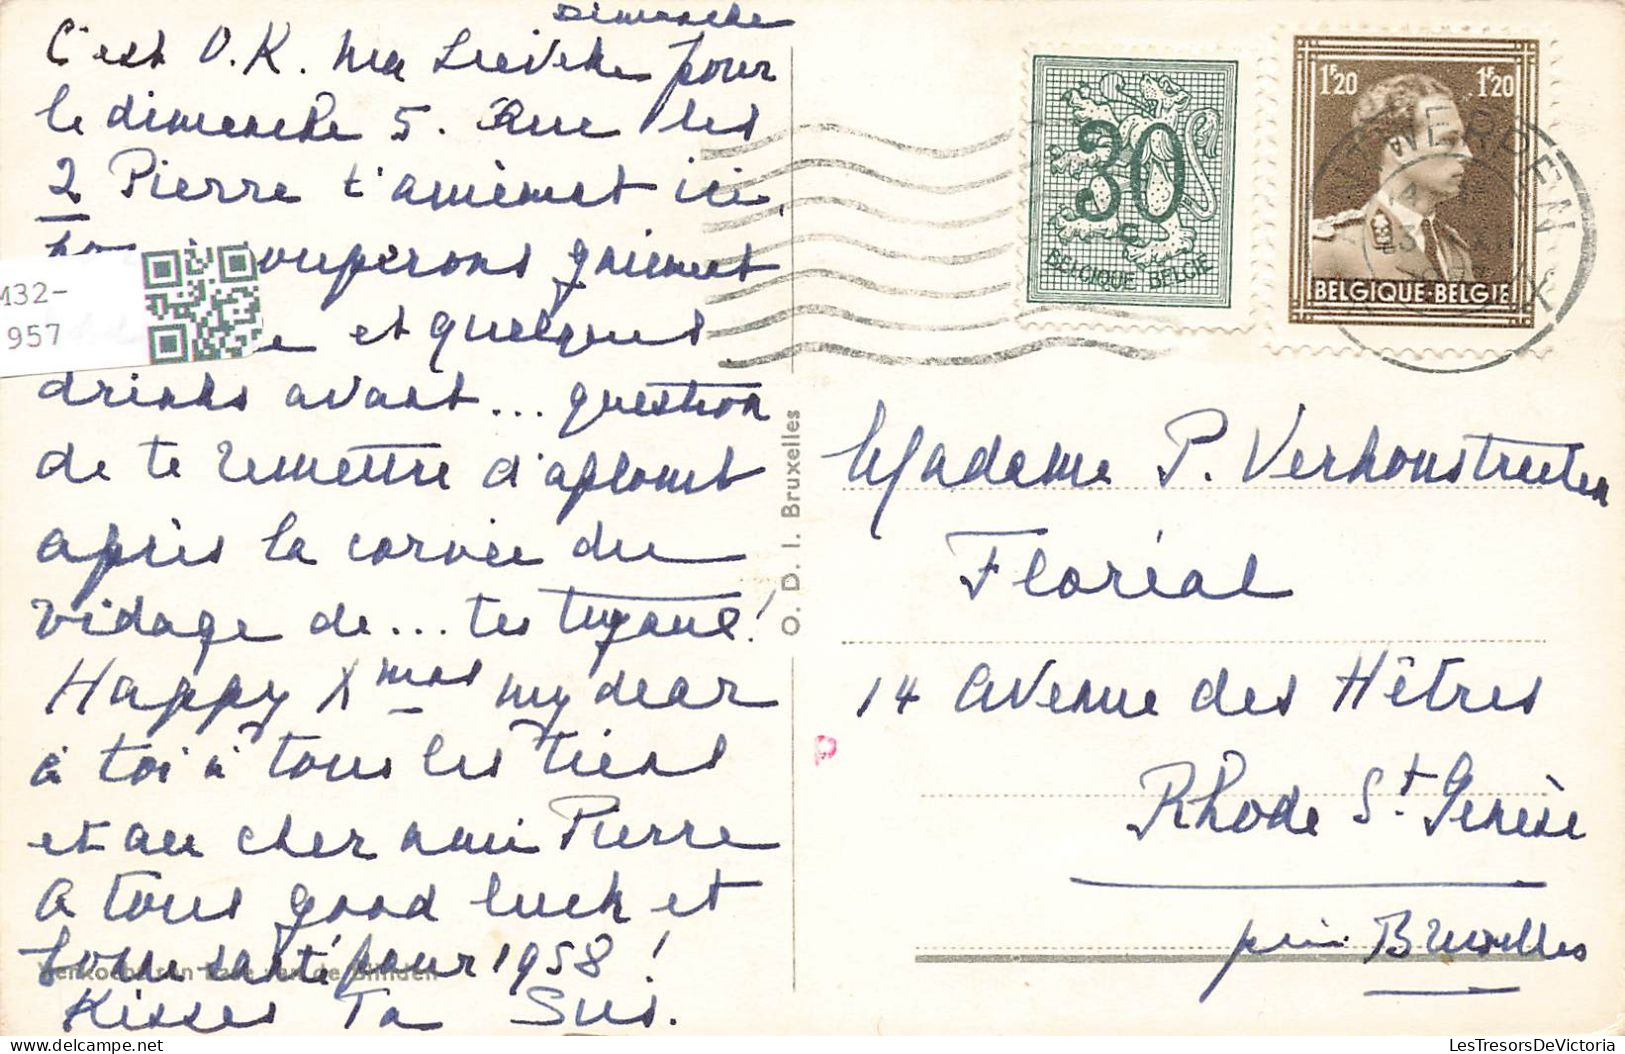 Dimanche
C'est O.K. ma Lieveke pour
le dimanche 5. Que les
2 Pierre t'amènent ici,
souperons gaiement
et quelques
drinks avant... question
de te remettre d'aplomb
après la corvée du
vidage de... tes tuyaux!
Happy Xmas my dear
à toi à tous les tiens
et au cher ami Pierre
A tous good luck et
bonne santé pour 1958!
Kisses Ta Sus.
M32-
957
O. D. I. Bruxelles
30
BELGIQUE BELGIË
1F20 1F20
BELGIQUE·BELGIE
Madame P. Verhoustraeten
Floréal
14 avenue des Hêtres
Rhode St Genèse
près Bruxelles
LesTresorsDeVictoria
delcampe.net